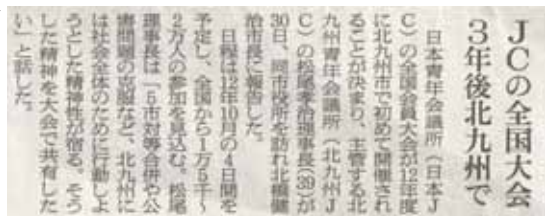 JCの全国大会
3年後北九州で
日本青年会議所(日本J
C)の全国会員大会が12年度
に北九州市で初めて開催され
ることが決まり、主管する北
九州青年会議所(北九州J
C)の松尾孝治理事長(39)が
30日、同市役所を訪れ北橋健
治市長に報告した。
日程は12年10月の4日間を
予定し、全国から1万5千〜
2万人の参加を見込む。松尾
理事長は「5市対等合併や公
害問題の克服など、北九州に
は社会全体のために行動しよ
うとした精神性が宿る。そう
した精神を大会で共有した
い」と話した。